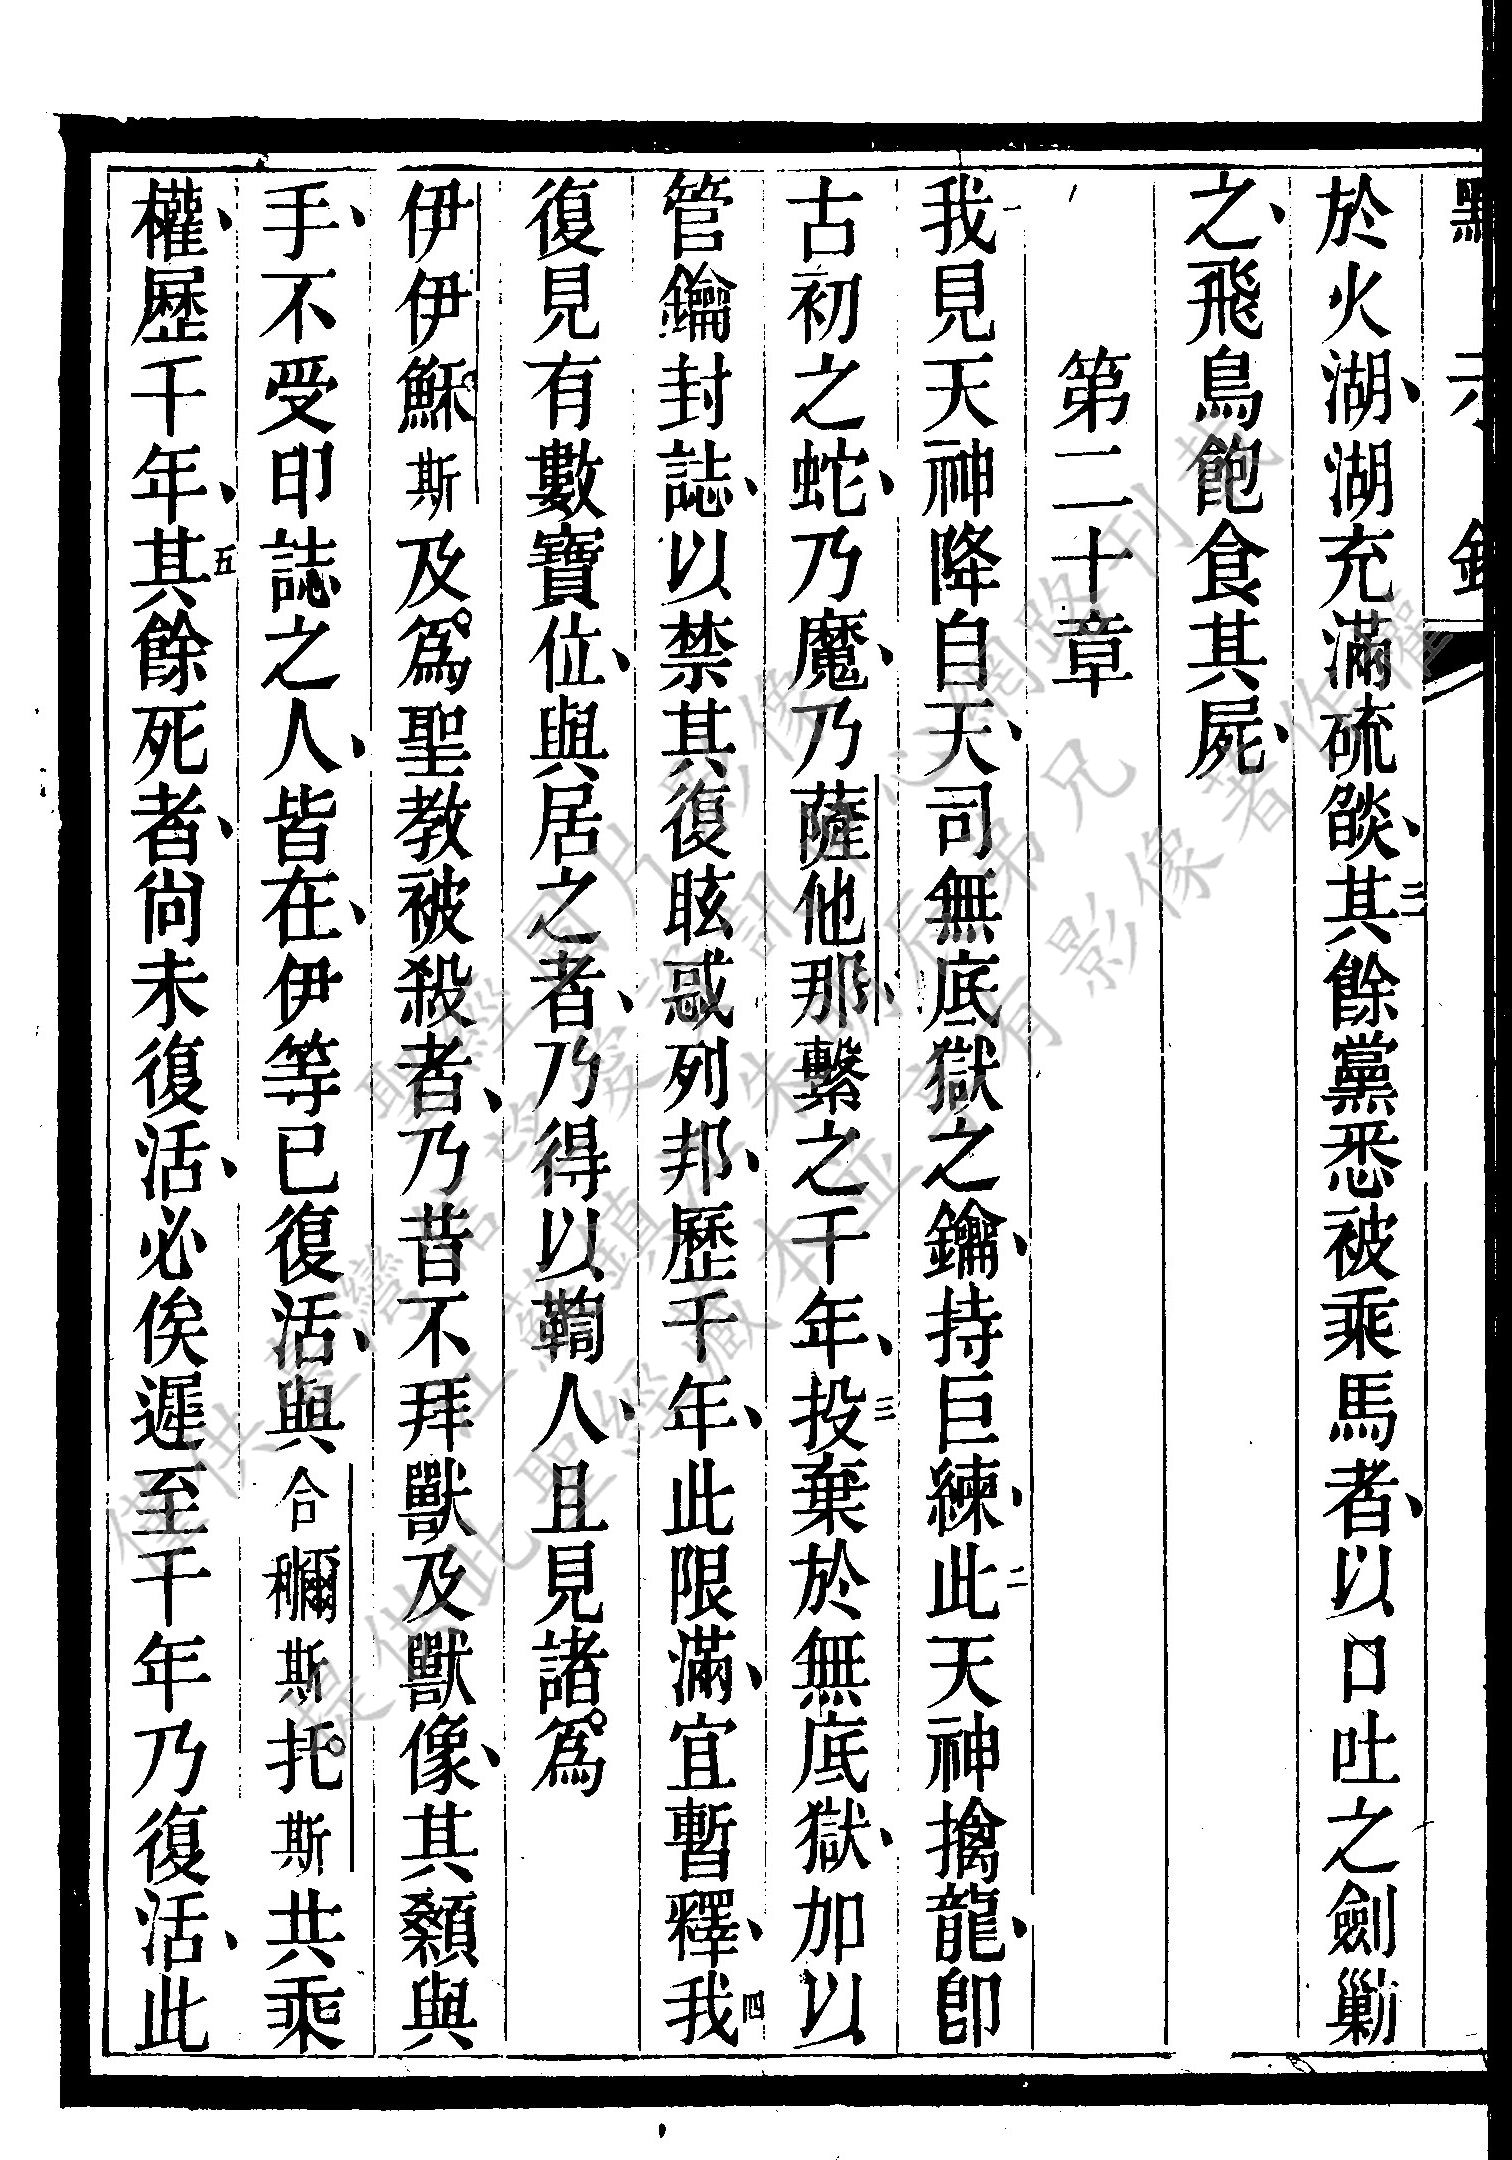 於火湖、湖充滿硫燄、二一其餘黨悉被乘馬者、以口吐之劍勦
之、飛鳥飽食其屍、
第二十章
一我見天神降自天、司無底獄之鑰、持巨練、二此天神擒龍、卽
古初之蛇、乃魔、乃薩他那、繫之千年、三投棄於無底獄、加以
管鑰封誌、以禁其復眩惑列邦、歷千年、此限滿、宜暫釋、四我
復見有數寶位、與居之者、乃得以鞫人、且見諸爲
伊伊穌斯及爲聖教被殺者、乃昔不拜獸及獸像、其顙與
手、不受印誌之人、皆在、伊等已復活、與合穪斯托斯共乘
權、歷千年、五其餘死者、尙未復活、必俟遲至千年乃復活、此